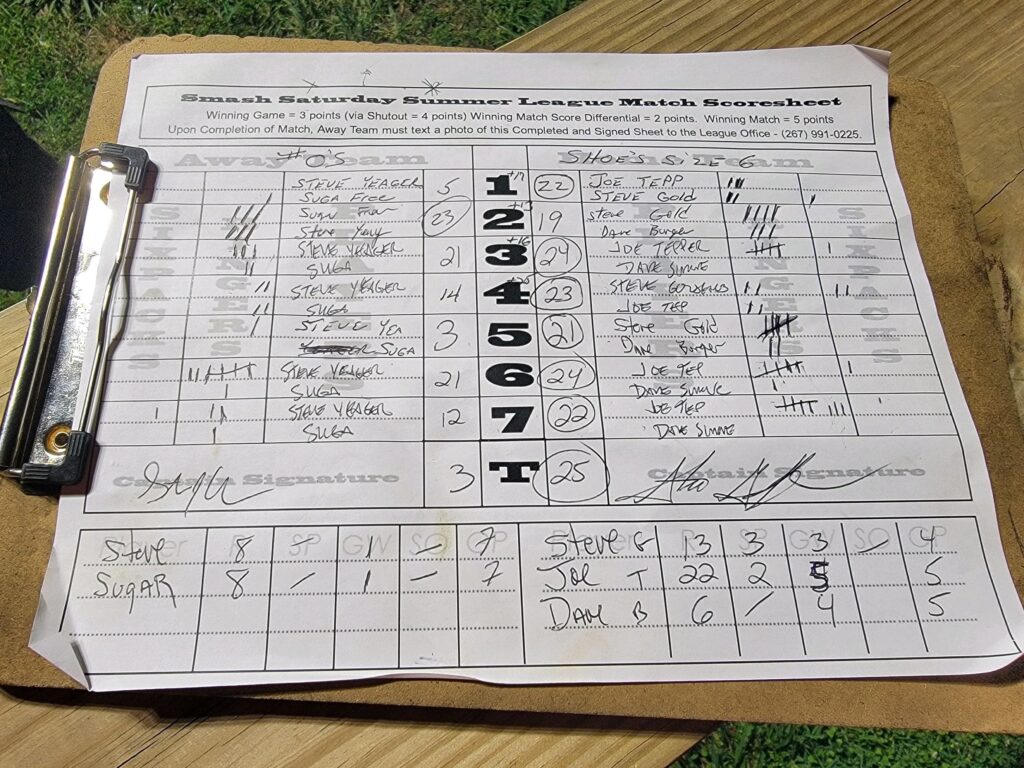 Smash Saturday Summer League Match Scoresheet
Winning Game = 3 points (via Shutout = 4 points) Winning Match Score Differential = 2 points. Winning Match = 5 points
Upon Completion of Match, Away Team must text a photo of this Completed and Signed Sheet to the League Office - (267) 991-0225.
Away Team #0'S SHOE'S SIZE 6
STEVE YEAGER 5 1 +17 22 JOE TEPP
SUGA FREE STEVE GOLD
23 2 19 Steve Gold
Steve Dave Burger
STEVE YEAGER 21 3 +16 24 JOE TEPPER
SUGA DAVE
STEVE YEAGER 14 4 23 STEVE
SUGA JOE TEP
STEVE YEA 3 5 21 Steve Gold
SUGA Dave Burger
STEVE YEAGER 21 6 24 JOE TEP
SUGA DAVE
STEVE YEAGER 12 7 22 JOE TEP
SUGA DAVE
Captain Signature 3 T 25 Captain Signature
SIXPACKS RINGERS RINGERS SIXPACKS
Player R SP GW SO GP Player R SP GW SO GP
Steve 8 - 1 - 7 Steve G 13 3 3 - 4
SUGAR 8 / 1 - 7 Joe T 22 2 5 5
DAVE B 6 / 4 5